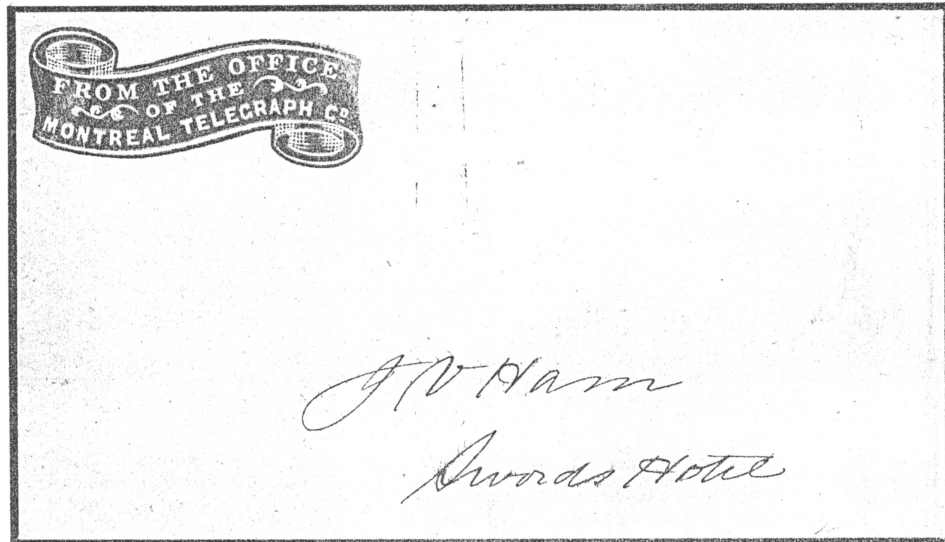 FROM THE OFFICE
OF THE
MONTREAL TELEGRAPH Co.
J V Ham
Swords Hotel